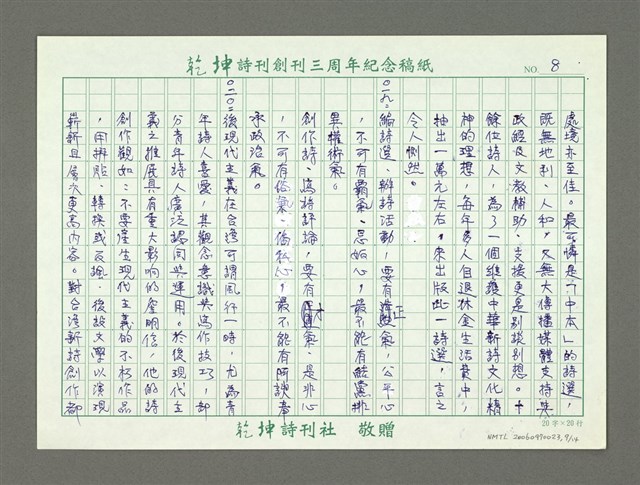 乾坤詩刊創刊三周年紀念稿紙
NO. 8
處境亦至佳。最可憐是「中本」的詩選，
既無地利、人和，又無大傳播媒體支持與
政經及文教補助、支援更是別談別想。十
餘位詩人，為了一個維護中華新詩文化精
神的理想，每年多人自退休金生活費中，
抽出一萬元左右，來出版此一詩選，言之
令人惻然。
編詩選、辦詩活動，要有正氣，公平心
，不可有霸氣、忌妬心，最不能有結黨排
異權術氣。
創作詩、寫詩評論，要有才氣、是非心
，不可有俗氣、偏私心，最不能有阿諛奉
承政治氣。
後現代主義在台灣可謂風行一時，尤為青
年詩人喜愛，其觀念意識與寫作技巧，部
分青年詩人廣泛認同與運用。於後現代主
義之推展具有重大影响的詹明信，他的詩
創作觀如：不要產生現代主義的不朽作品
，用拼貼、轉換或反諷、後設文學以演現
嶄新且層次更高內容。對台灣新詩創作都
20字×20行
乾坤詩刊社 敬贈
NMTL 20060990023, 9/14